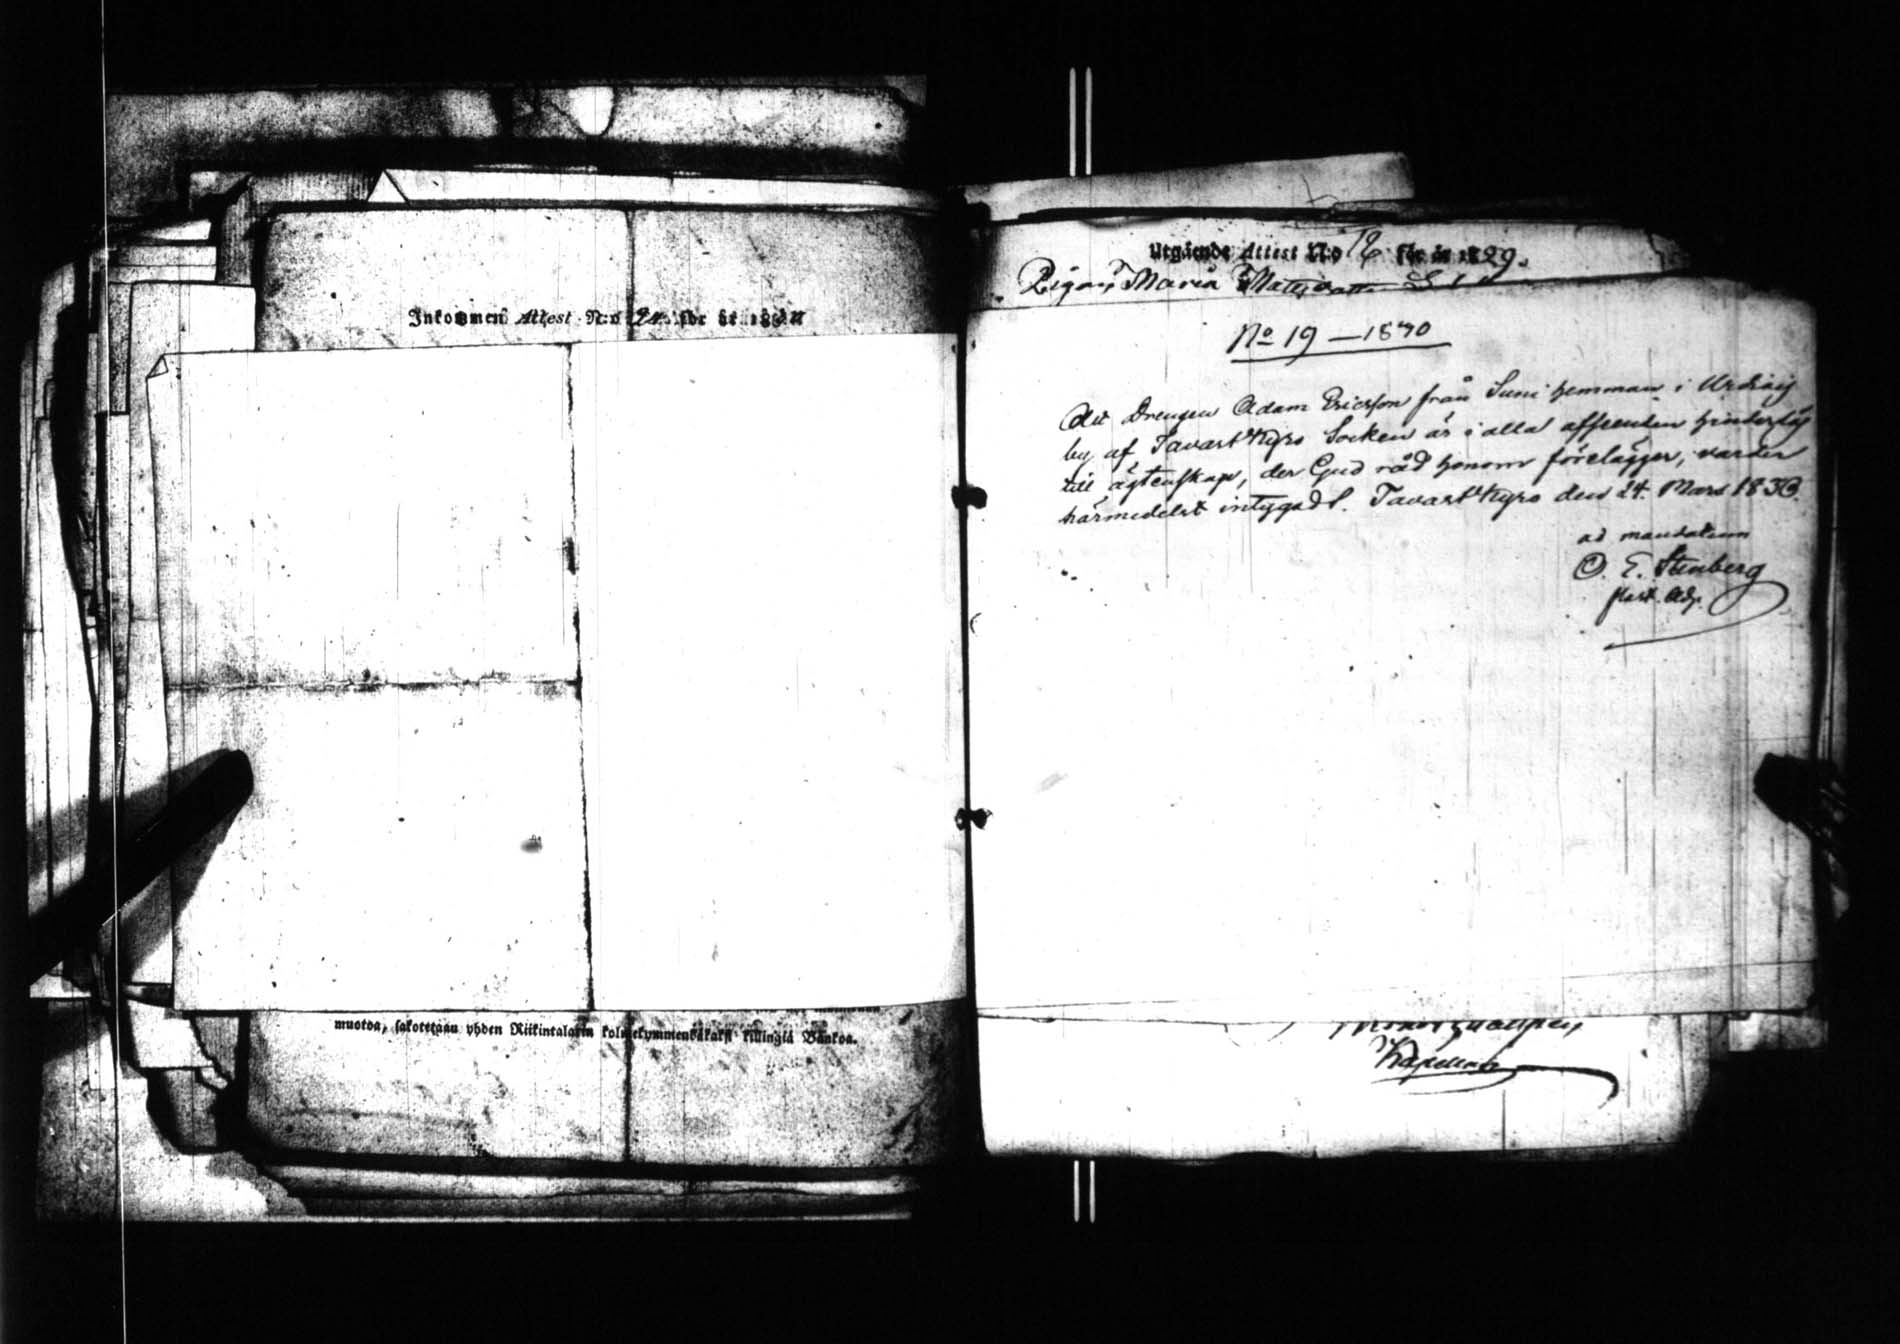 Inkommen Attest N:o 24. för år 18
muotoa, sakotetaan yhden Riikintalarin kolmekymmendäkaksi killingiä Bankoa.
Utgående Attest N:o 12 för år 1829.
Pigan Maria Matsdotter
No 19 – 1830
Att Drengen Adam Ericsson från Suni hemman i
by af Tavastkyro Socken är i alla afseenden hinderslös
till ägtenskap, der Gud råd honom förelägger, warder
härmedelst intygadt. Tavastkyro den 24. Mars 1830.
ad mandatum
O. E. Stenberg
Past. Adj.
Kapellan